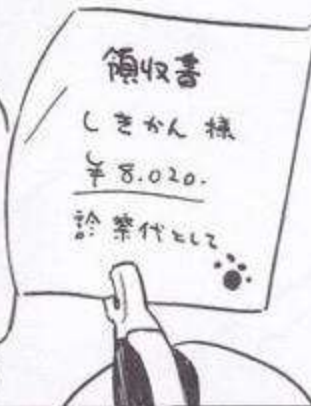 領収書
しきかん 様
¥8.020.
診察代として